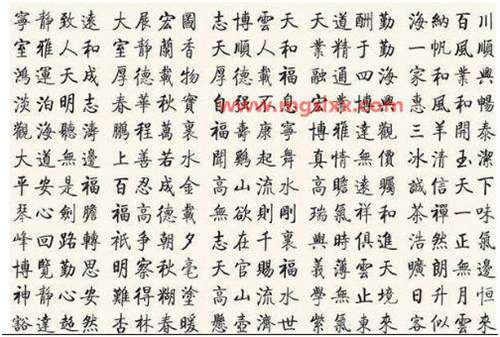 寧靜致遠 大展宏圖 志博雲天 天道酬勤 海納百川
室雅人和 室靜蘭香 天順人和 業精于勤 一帆風順
鴻運天成 厚德載物 厚德載福 融通四海 家和業興
淡泊明志 春華秋實 自 福 惠風和暢
www.mgxlxx.com
觀海聽濤 鵬程萬裏 福壽康寧 博雅達觀 三羊開泰
大道無邊 上善若水 聞鷄起舞 真情無價 冰清玉潔
平安是福 百忍成金 高山流水 高瞻遠矚 誠信天下
琴心劍膽 福高德載 無欲則剛 瑞氣祥和 茶禪一味
峰回路轉 祇爭朝夕 志在千裏 與時俱進 浩然正氣
博覽勤思 明察秋毫 天官賜福 義薄雲天 曠朗無邊
神靜心安 難得糊塗 高山流水 學無止境 日升月恒
豁達超然 杏林春暖 懸壺濟世 紫氣東來 客似雲